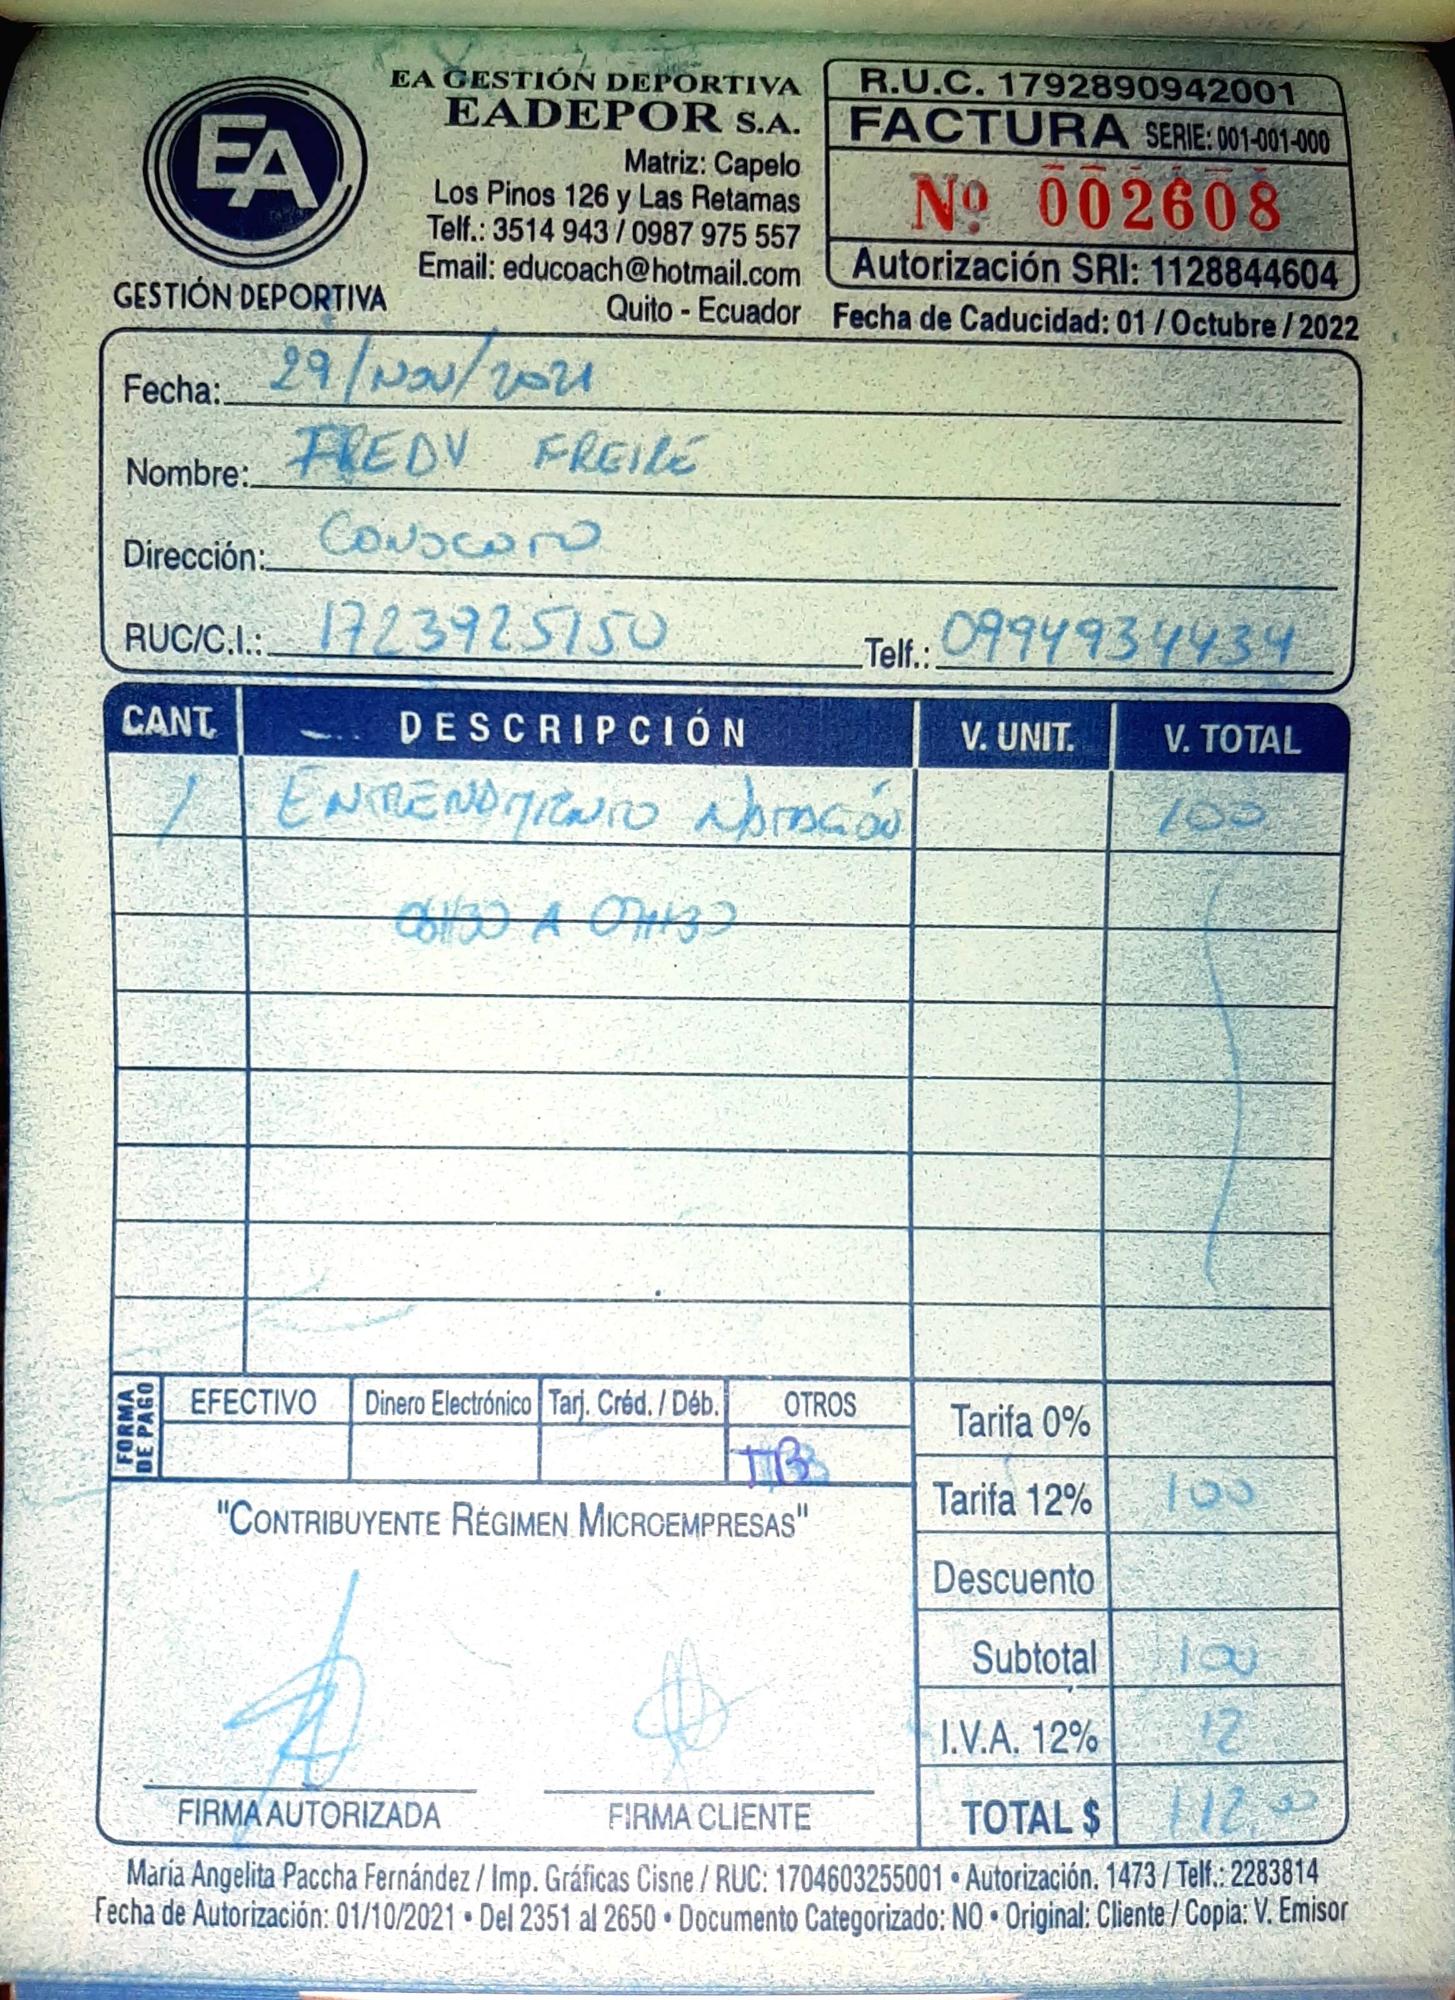 EA
GESTIÓN DEPORTIVA
EA GESTIÓN DEPORTIVA
EADEPOR S.A.
Matriz: Capelo
Los Pinos 126 y Las Retamas
Telf.: 3514 943 / 0987 975 557
Email: educoach@hotmail.com
Quito - Ecuador
R.U.C. 1792890942001
FACTURA SERIE: 001-001-000
Nº 002608
Autorización SRI: 1128844604
Fecha de Caducidad: 01 / Octubre / 2022
Fecha: 29/NOV/2021
Nombre: FREDY FREIRE
Dirección: CONOCOTO
RUC/C.I.: 1723925150 Telf.: 0994934434
CANT. DESCRIPCIÓN V. UNIT. V. TOTAL
1 ENTRENAMIENTO NATACIÓN 100
06H30 A 07H30
FORMA DE PAGO
EFECTIVO Dinero Electrónico Tarj. Créd. / Déb. OTROS
TB
Tarifa 0%
Tarifa 12% 100
Descuento
Subtotal 100
I.V.A. 12% 12
TOTAL $ 112.00
"CONTRIBUYENTE RÉGIMEN MICROEMPRESAS"
FIRMA AUTORIZADA FIRMA CLIENTE
María Angelita Paccha Fernández / Imp. Gráficas Cisne / RUC: 1704603255001 • Autorización. 1473 / Telf.: 2283814
Fecha de Autorización: 01/10/2021 • Del 2351 al 2650 • Documento Categorizado: NO • Original: Cliente / Copia: V. Emisor